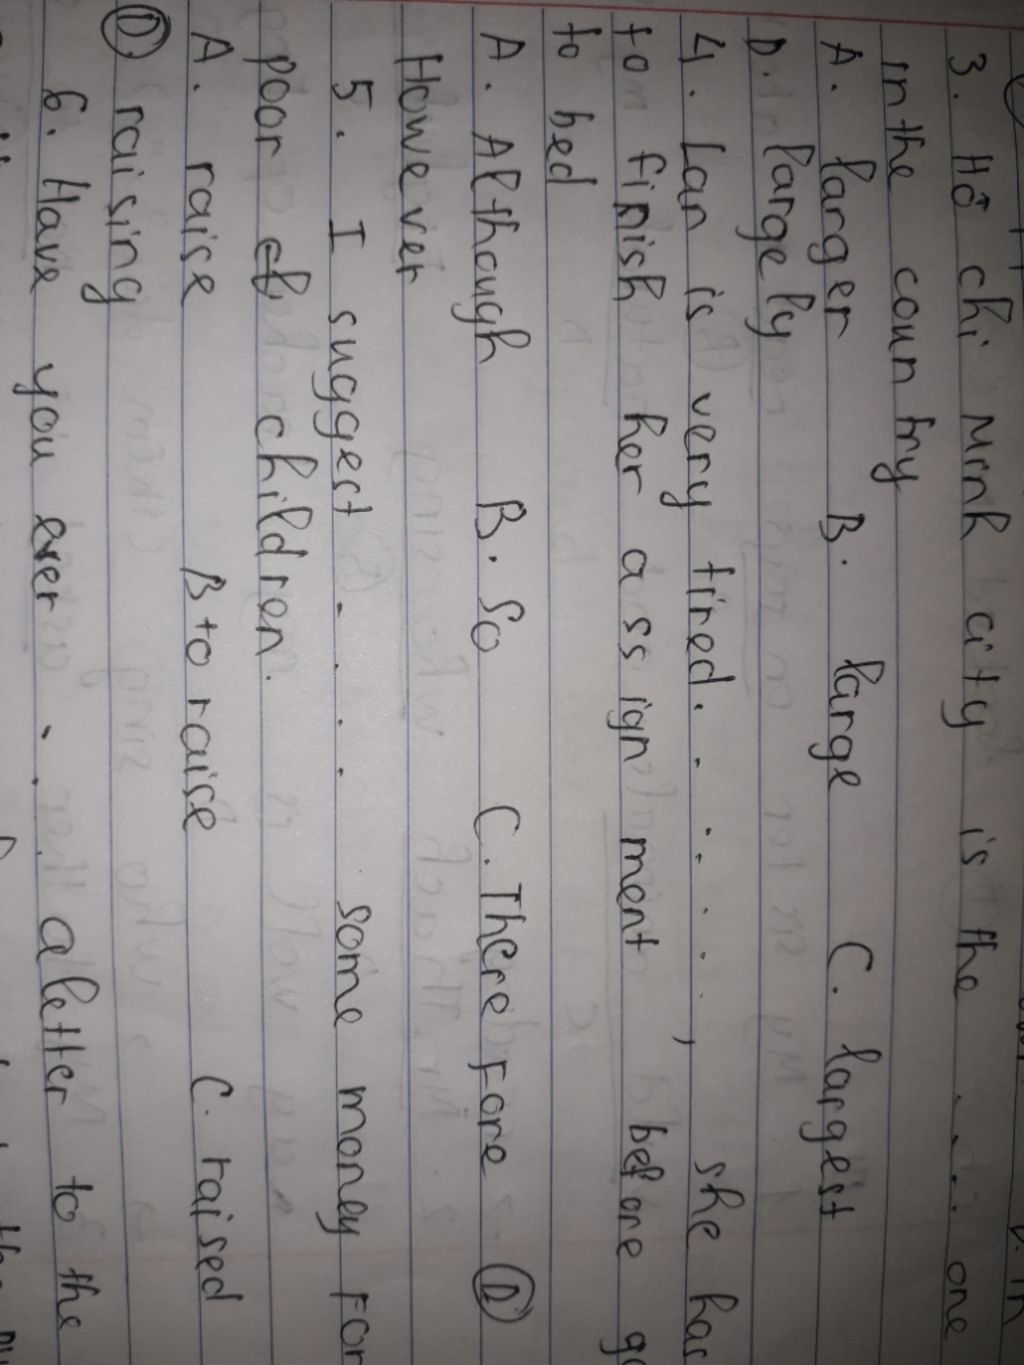 3. Hồ chi Minh city is the .... one
in the country
A. larger B. large C. largest
D. largely
4. Lan is very tired. ......, she has
to finish her assignment before
to bed
A. Although B. So C. Therefore D
However
5. I suggest ..... some money for
poor children.
A. raise B to raise C. raised
D raising
6. Have you ever ... a letter to the